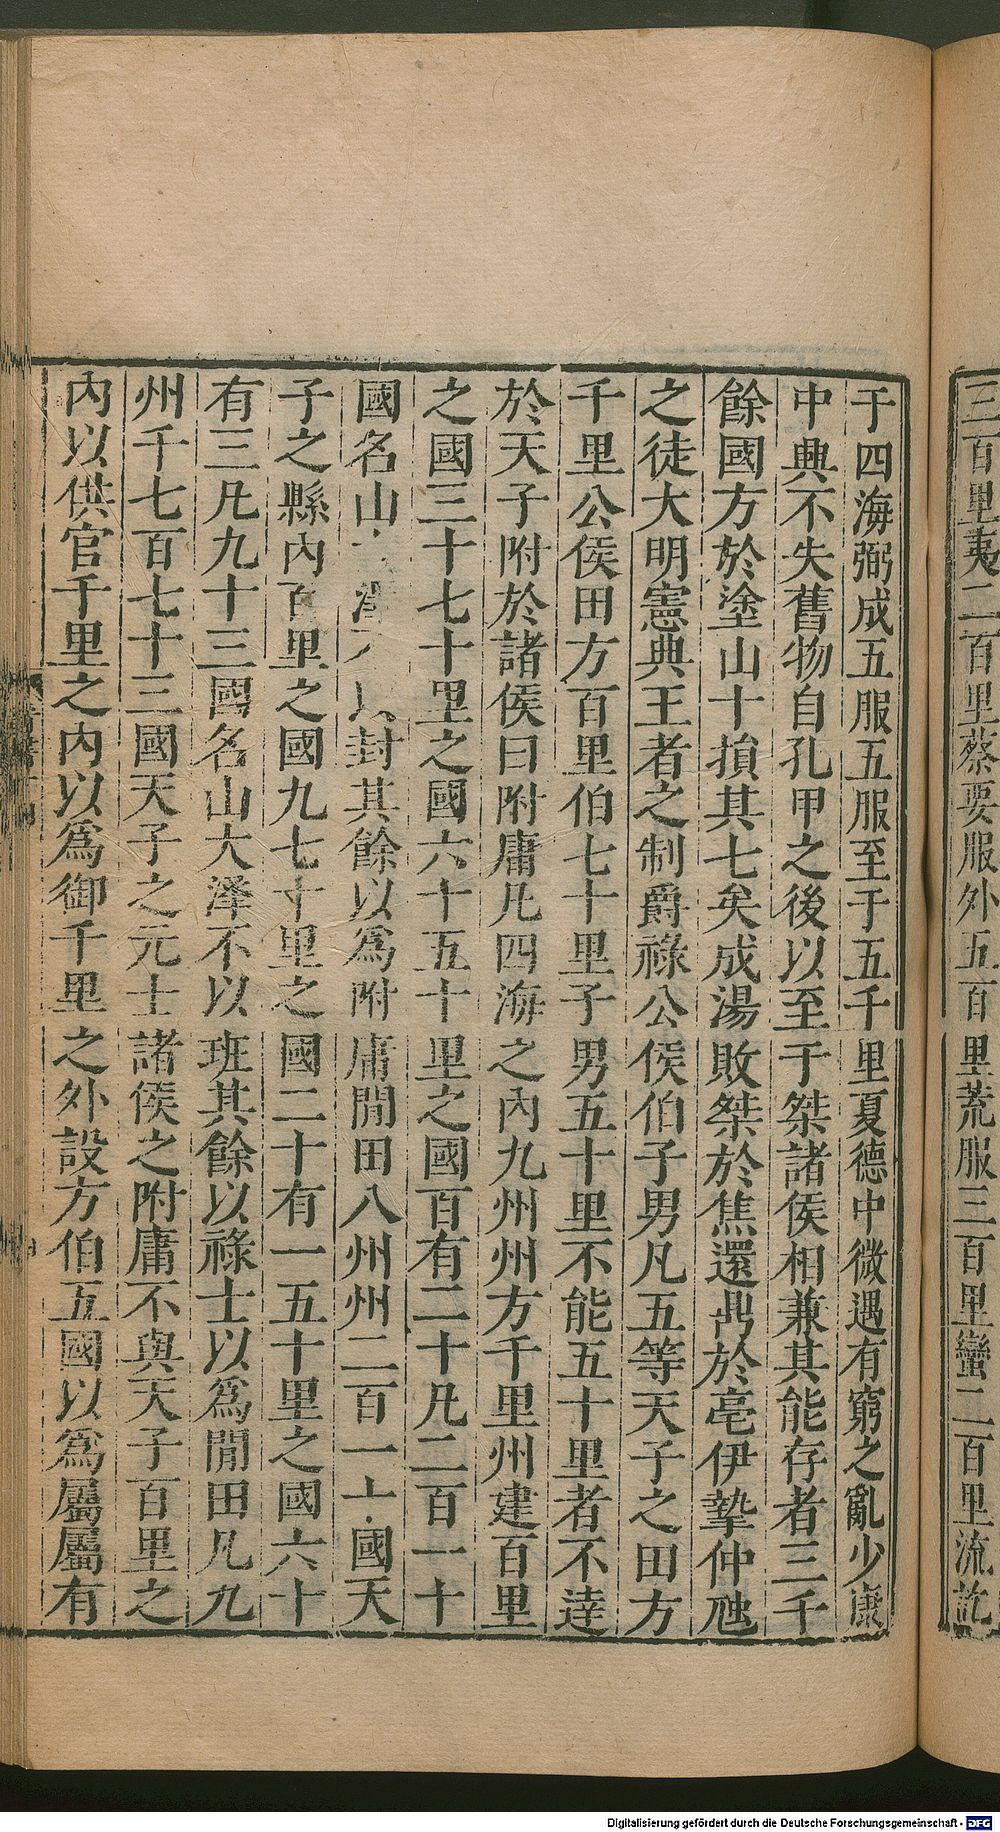 三百里夷二百里蔡要服外五百里荒服三百里蠻二百里流訖
于四海弼成五服五服至于五千里夏德中微遇有窮之亂少康
中興不失舊物自孔甲之後以至于桀諸侯相兼其能存者三千
餘國方於塗山十損其七矣成湯敗桀於焦還鼎於亳伊摯仲虺
之徒大明憲典王者之制爵祿公侯伯子男凡五等天子之田方
千里公侯田方百里伯七十里子男五十里不能五十里者不達
於天子附於諸侯曰附庸凡四海之內九州州方千里州建百里
之國三十七十里之國六十五十里之國百有二十凡二百一十
國名山澤封其餘以爲附庸閒田八州州二百一十國天
子之縣內百里之國九七十里之國二十有一五十里之國六十
有三凡九十三國名山大澤不以班其餘以祿士以爲閒田凡九
州千七百七十三國天子之元士諸侯之附庸不與天子百里之
內以供官千里之內以爲御千里之外設方伯五國以爲屬屬有
Digitalisierung gefördert durch die Deutsche Forschungsgemeinschaft - DFG